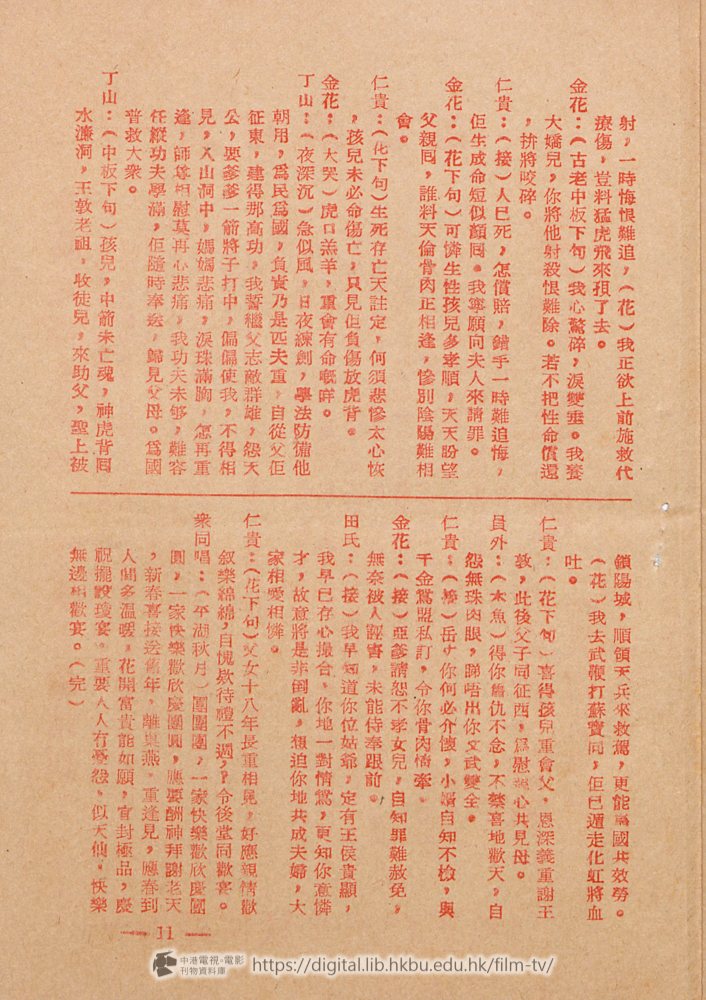 射,一時悔恨難追,(花)我正欲上前施救代
療傷,豈料猛虎飛來孭了去。
金花:(古老中板下句)我心驚碎,淚雙垂。我養
大嬌兒,你將他射殺恨難除。若不把性命償還
,拚將咬碎。
仁貴:(接)人已死,怎償賠,錯手一時難追悔,
佢生成命短似顏回。我寧願向夫人來請罪。
金花:(花下句)可憐生性孩兒多孝順,天天盼望
父親回,誰料天倫骨肉正相逢,慘別陰陽難相
會。
仁貴:(花下句)生死存亡天註定,何須悲慘太心恢
,孩兒未必命傷亡,只見佢負傷放虎背。
金花:(大哭)虎口羔羊,重會有命嘅咩。
丁山:(夜深沉)急似風,日夜練劍,學法防備他
朝用,爲民爲國,負責乃是匹夫重,自從父佢
征東,建得那高功,我誓繼父志敵群雄,怨天
公,要爹爹一箭將子打中,偏偏使我,不得相
見,入山洞中,媽媽悲痛,淚珠滿胸,怎再重
逢,師尊相慰莫再心悲痛,我功夫未够,難容
任縱功夫學滿,佢隨時奉送,歸見父母。爲國
晉救大衆。
丁山:(中板下句)孩兒,中箭未亡魂,神虎背囘
水濂洞,王敖老祖,收徒兒,來助父,聖上被
鎖陽城,順領天兵來救駕,更能爲國共效勞。
(花)我去武鞭打蘇寶同,佢已遁走化虹將血
吐。
仁貴:(花下句)喜得孩兒重會父,恩深義重謝王
敖,此後父子同征西,爲慰親心共見母。
員外:(木魚)得你舊仇不念,不禁喜地歡天,自
怨無珠肉眼,睇唔出你文武雙全。
仁貴:(接)岳丈你何必介懷,小婿自知不檢,與
千金鴛盟私訂,令你骨肉情牽。
金花:(接)亞爹請恕不孝女兒,自知罪難赦免,
無奈被人誣害,未能侍奉跟前。
田氏:(接)我早知道你位姑爺,定有王侯貴顯,
我早已存心撮合,你地一對情鴛,更知你意憐
才,故意將是非倒亂,想迫你地共成夫婦,大
家相愛相憐。
仁貴:(花下句)父女十八年長重相見,好應親情歡
叙樂綿綿,自愧欵待禮不週,令後堂同歡宴。
衆同唱:(平湖秋月)團團團,一家快樂歡欣慶團
圓,一家快樂歡欣慶團圓,應要酬神拜謝老天
,新春喜接送舊年,離巢燕,重逢見,應春到
人間多溫暖,花開富貴能如願,官封極品,慶
祝擺設瓊宴。重要人人有憂怨,似天仙,快樂
無邊相歡宴。(完)
11
中港電視·電影
刊物資料庫
https://digital.lib.hkbu.edu.hk/film-tv/